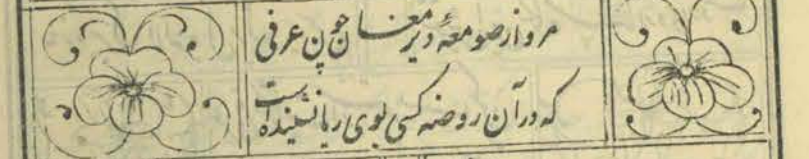 مرو از صومعه و دیر مغان جون عرفی
که در آن روضه کسی بوی ریا نشنیده است